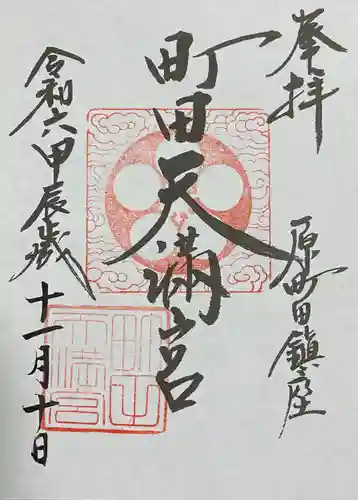 奉拝
原町田鎮座
町田天満宮
令和六甲辰歳
十一月十日